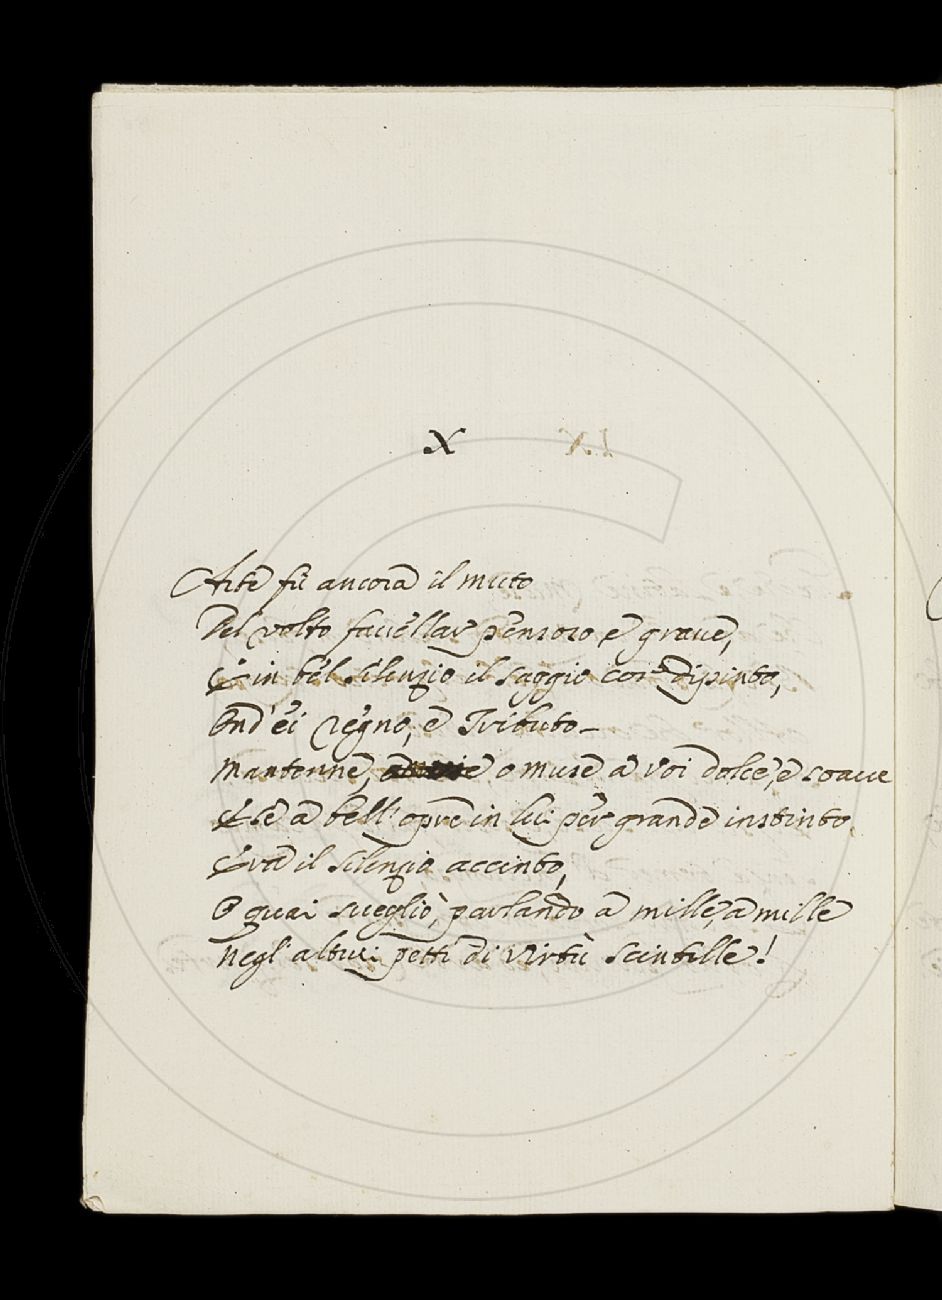 X
Arte fù ancora il muto
Del volto fauellar pensoso, e graue,
E in bel silenzio il saggio cor dipinto,
Ond'ei regno, e Tributo
Mantenne, o Muse a voi dolce, e soaue
E se a bell'opre in lui per grande instinto
Era il silenzio accinto,
O quai suegliò, parlando a mille, a mille
Negl'altrui petti di virtù scintille!